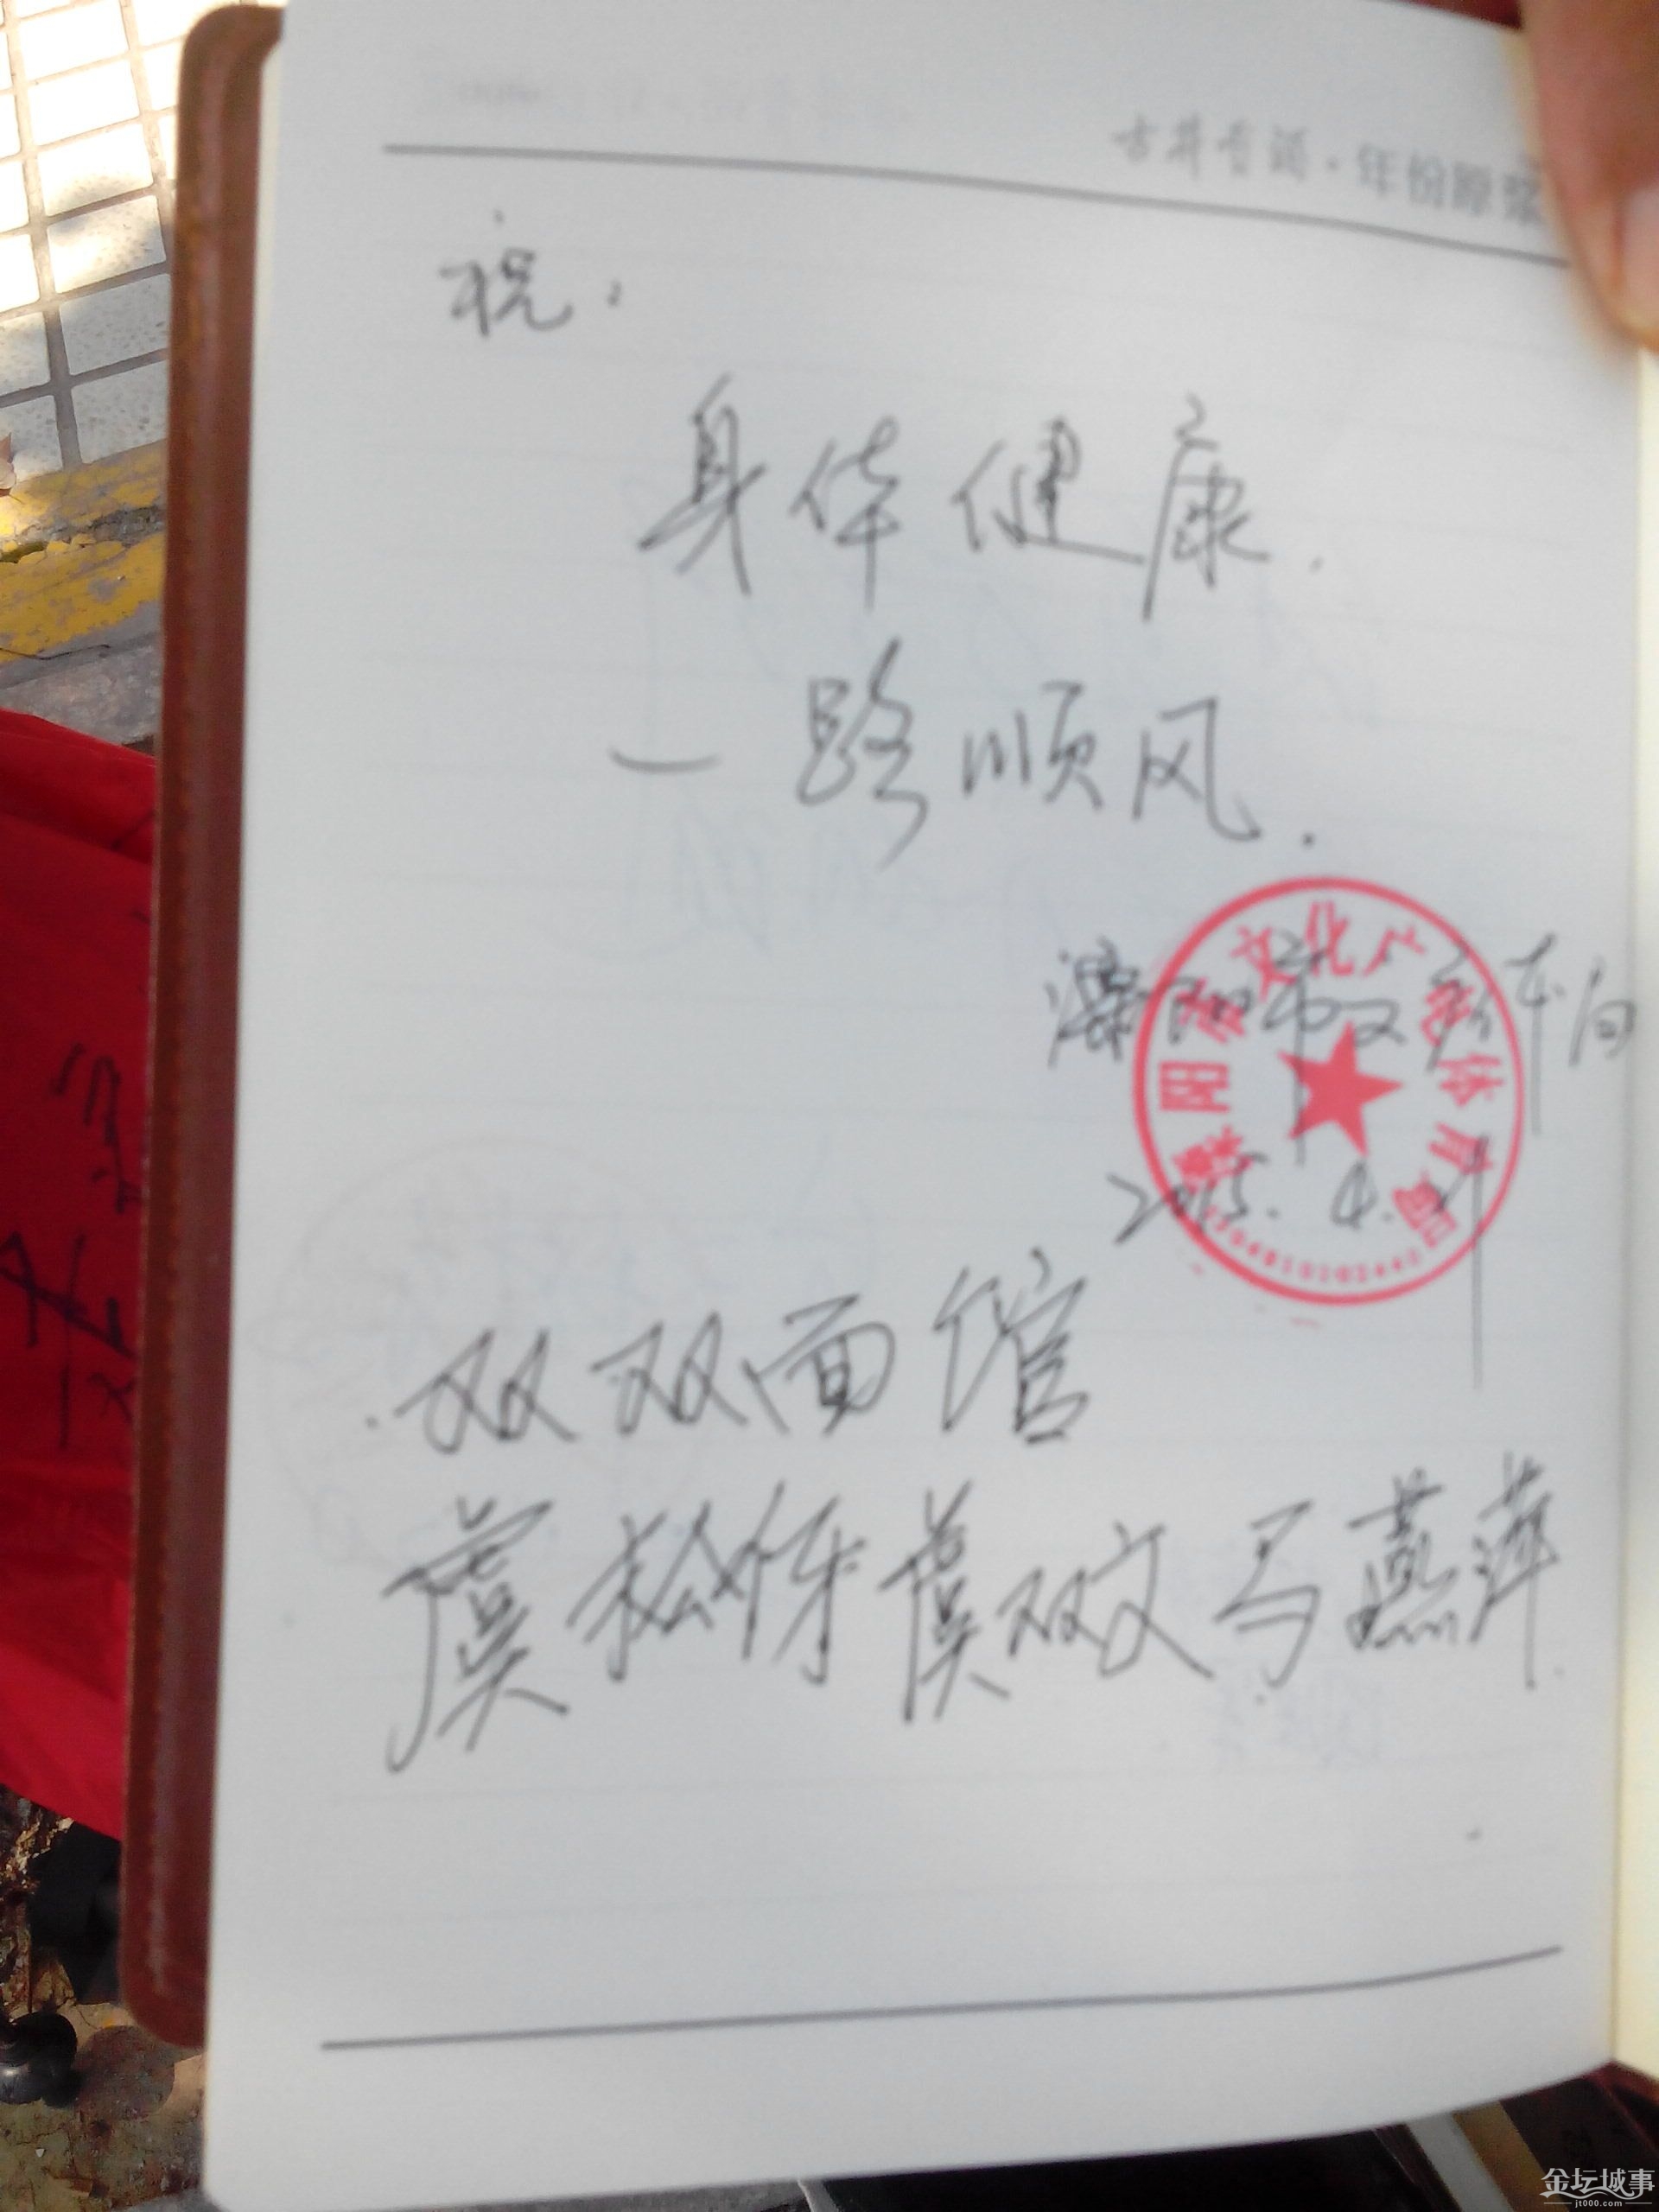 古井贡酒·年份原浆
祝:
身体健康.
一路顺风.
溧阳市文
溧阳市文化广电体育局
2015.4.
双双面馆
虞松伢 虞双文 马燕萍
金坛城事
jt000.com